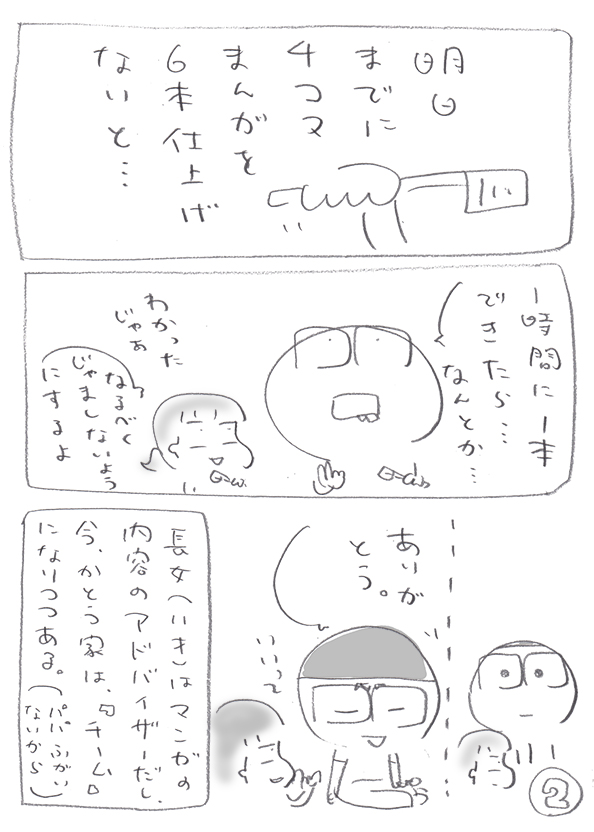 明日
までに
4コマ
まんがを
6本仕上げ
ないと…
一時間に一本
できたら…
なんとか…
わかった
じゃあ
なるべく
じゃましないよう
にするよ
ありが
とう。
いいって
長女(いき)はマンガの
内容のアドバイザーだし、
今、かとう家は、チーム
になりつつある。(パパふがい
ないから)
2